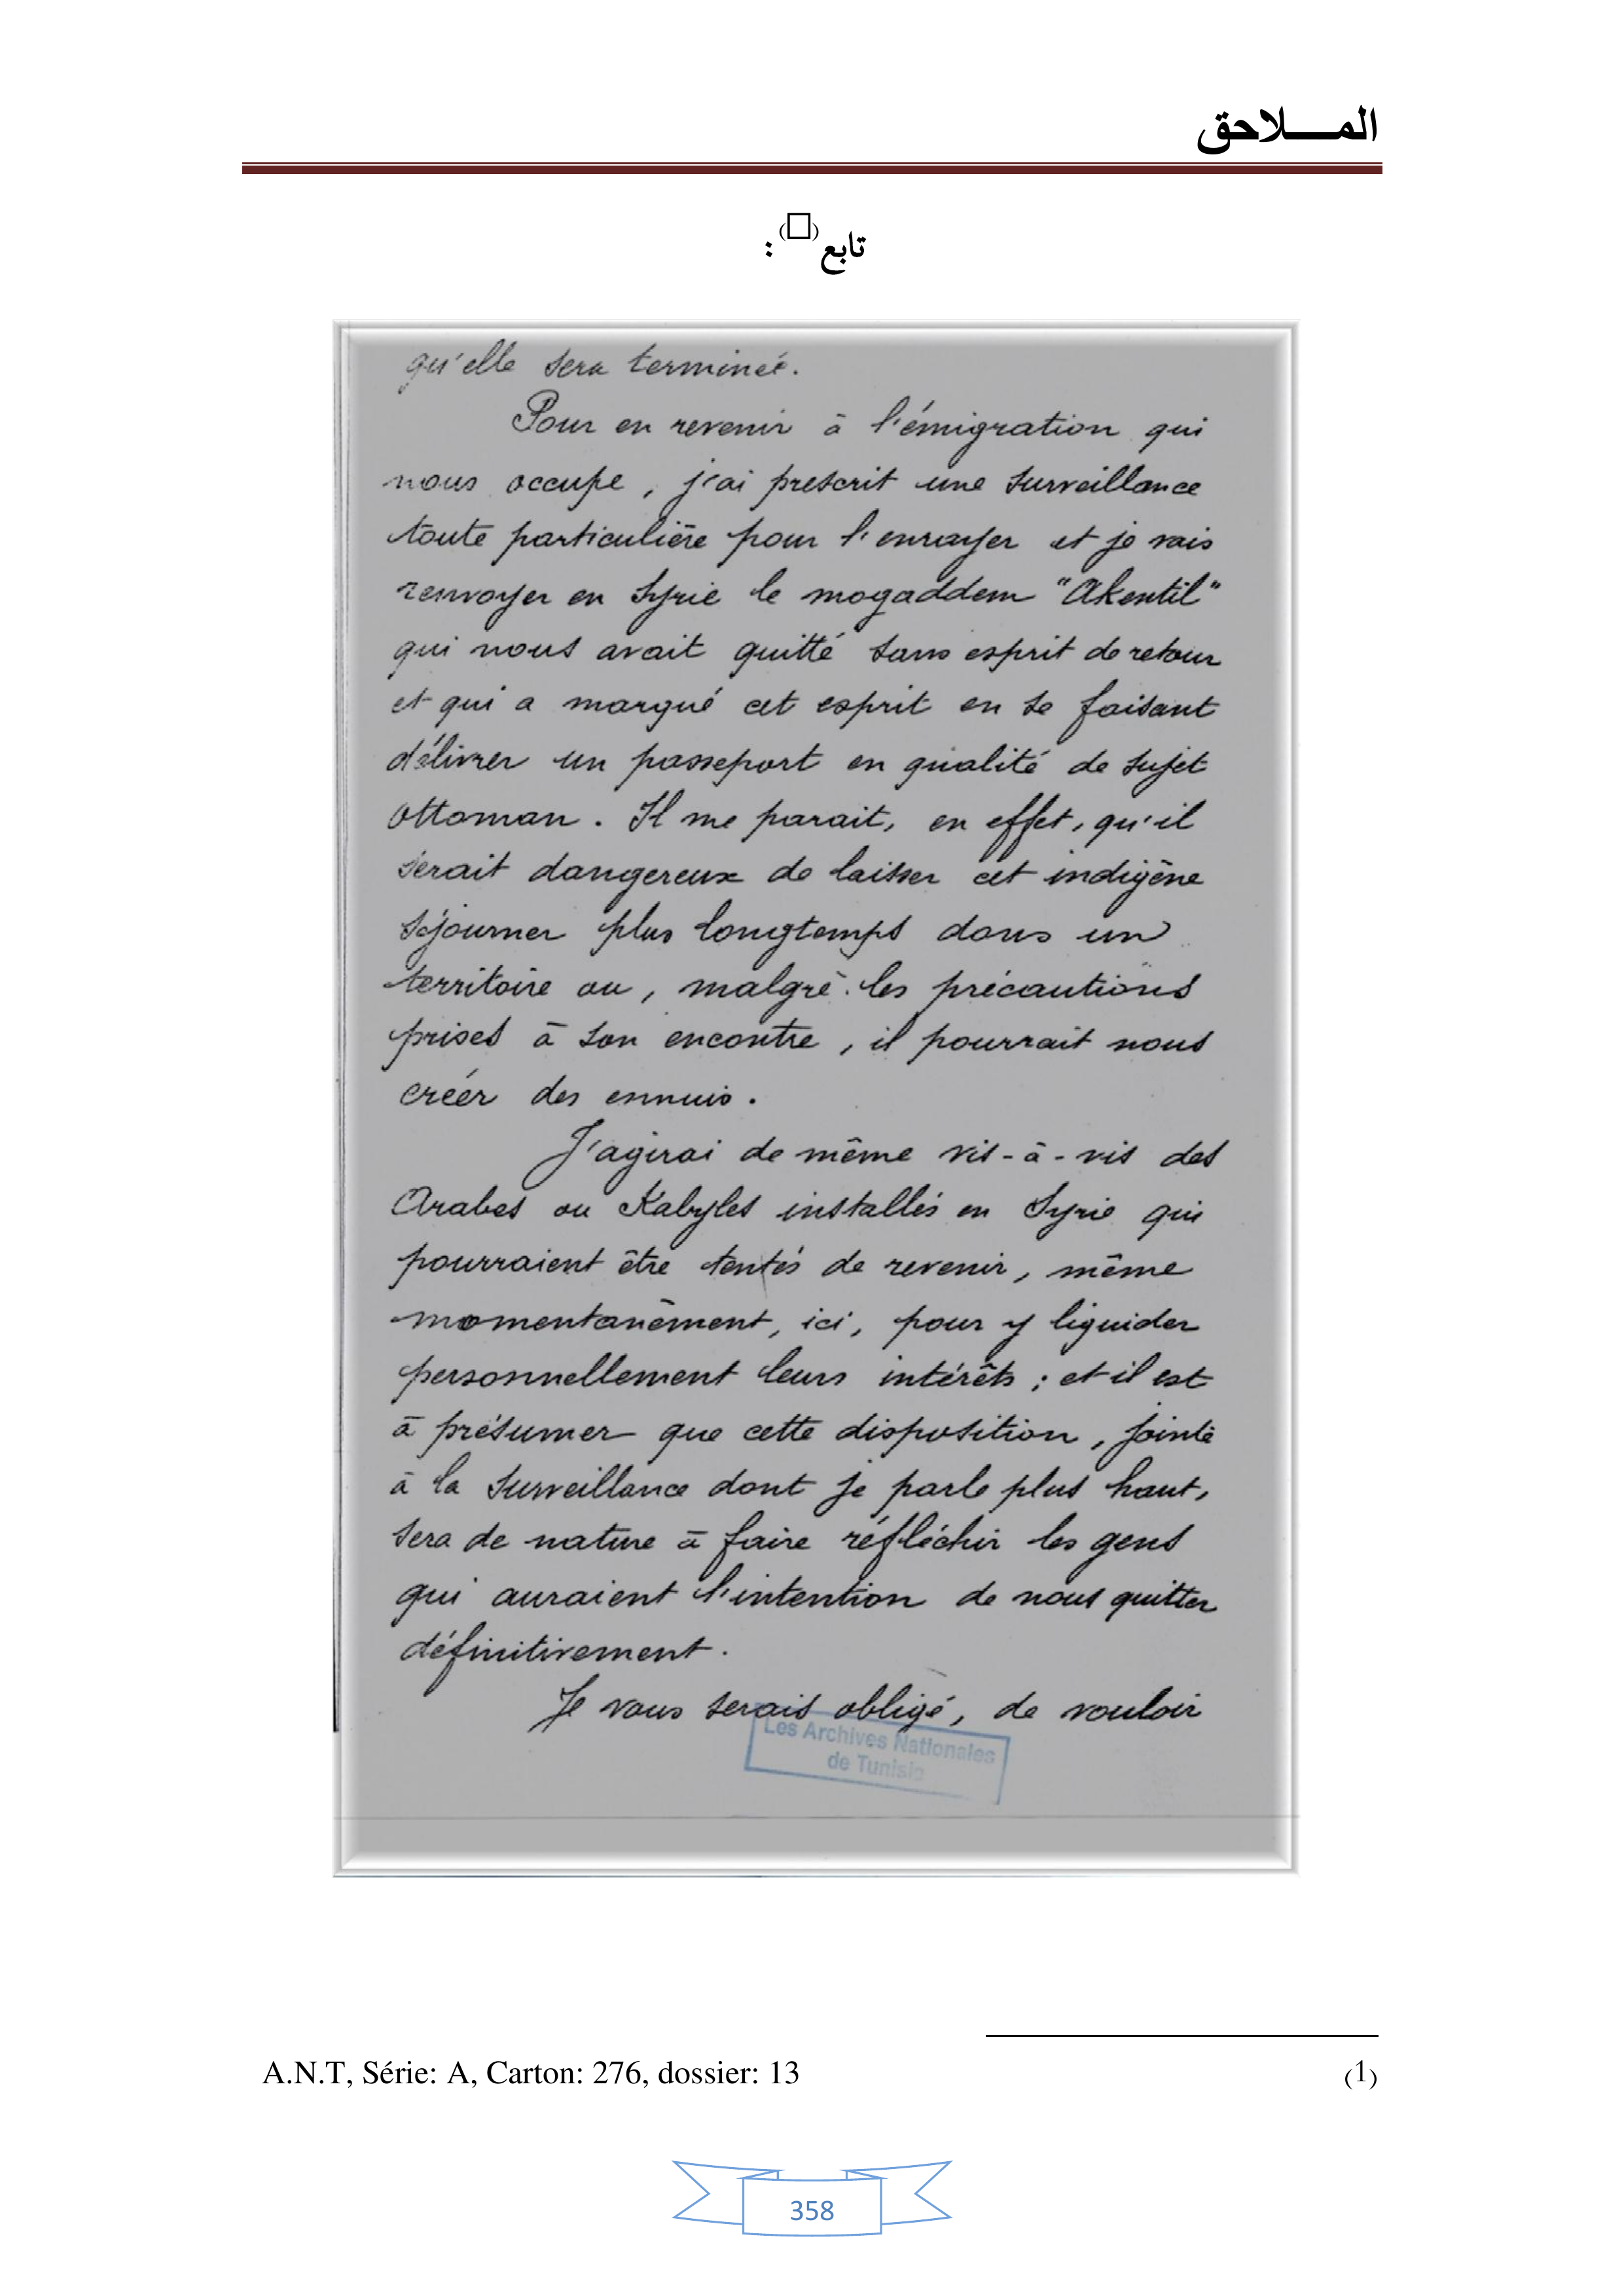 المـــــلاحق
تابع(□) :
qu'elle sera terminée.
Pour en revenir à l'émigration qui
nous occupe, j'ai prescrit une surveillance
toute particulière pour l'enrayer et je vais
renvoyer en Syrie le mogaddem "Akentil"
qui nous avait quitté sans esprit de retour
et qui a marqué cet esprit en se faisant
délivrer un passeport en qualité de sujet
ottoman. Il me parait, en effet, qu'il
serait dangereux de laisser cet indigène
séjourner plus longtemps dans un
territoire ou, malgré les précautions
prises à son encontre, il pourrait nous
créer des ennuis.
J'agirai de même vis-à-vis des
Arabes ou Kabyles installés en Syrie qui
pourraient être tentés de revenir, même
momentanément, ici, pour y liquider
personnellement leurs intérêts ; et il est
à présumer que cette disposition, jointe
à la surveillance dont je parle plus haut,
sera de nature à faire réfléchir les gens
qui auraient l'intention de nous quitter
définitivement.
Je vous serais obligé, de vouloir
Les Archives Nationales
de Tunisie
(1) A.N.T, Série: A, Carton: 276, dossier: 13
358